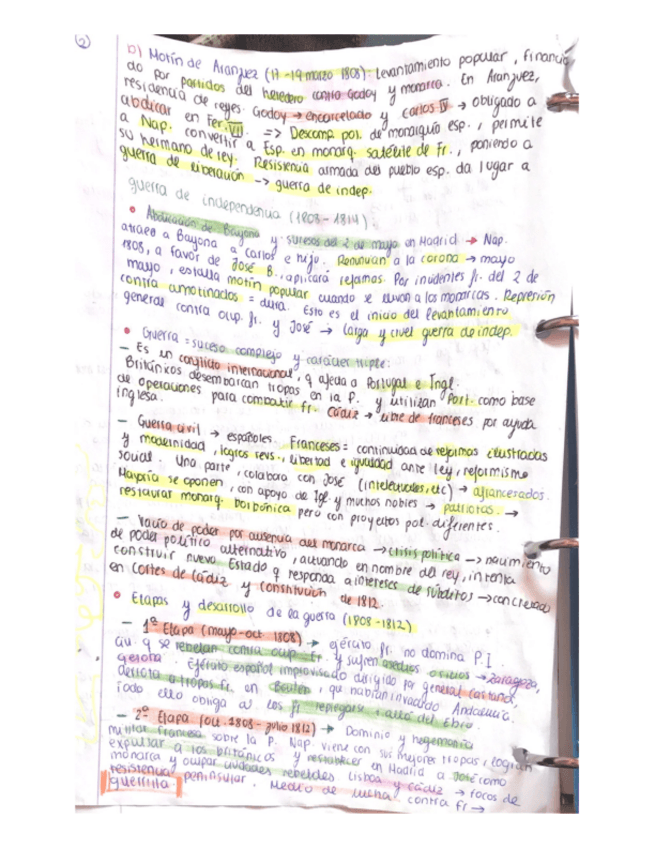 2
b) Motín de Aranjuez (17-19 marzo 1808)- Levantamiento popular, financia
do por partidos del heredero contra Godoy y monarca. En Aranjuez,
residencia de reyes. Godoy → encarcelado y Carlos IV → obligado a
abdicar en Fer. VII. => Descomp. pol. de monarquía esp., permite
a Nap. convertir a Esp. en monarq. satélite de Fr., poniendo a
su hermano de rey. Resistencia armada del pueblo esp. da lugar a
guerra de liberación -> guerra de indep.
guerra de independencia (1808-1814):
• Abdicación de Bayona y sucesos del 2 de mayo en Madrid → Nap.
atrae a Bayona a Carlos e hijo. Renuncian a la corona → mayo
1808, a favor de José B., aplicará reformas. Por incidentes fr. del 2 de
mayo, estalla motín popular cuando se llevan a los monarcas. Represión
contra amotinados = dura. Esto es el inicio del levantamiento
general contra ocup. fr. y José → larga y cruel guerra de indep.
• Guerra = suceso complejo y carácter triple:
- Es un conflicto internacional, q afecta a Portugal e Ingl.
Británicos desembarcan tropas en la P. y utilizan Port. como base
de operaciones para combatir fr. Cádiz → libre de franceses por ayuda
inglesa.
- Guerra civil → españoles. Franceses = continuidad de reformas ilustradas
y modernidad, logros revs., libertad e igualdad ante ley, reformismo
social. Una parte, colabora con José (intelectuales, etc) → afrancesados.
Mayoría se oponen, con apoyo de Igl. y muchos nobles → patriotas. →
restaurar monarq. borbónica pero con proyectos pol. diferentes.
- Vacío de poder por ausencia del monarca → crisis política → nacimiento
de poder político alternativo, actuando en nombre del rey, intenta
construir nuevo Estado q responda a intereses de súbditos → concretado
en Cortes de Cádiz y Constitución de 1812.
• Etapas y desarrollo de la guerra (1808-1812)
- 1ª Etapa (mayo-oct. 1808) → ejército fr. no domina P.I.
ciu. q se rebelan contra ocup. Fr. y sufren asedios → Zaragoza,
Gerona. Ejército español improvisado dirigido por general Castaños,
derrota a tropas fr. en Bailén, que habían invadido Andalucía.
Todo ello obliga a los fr replegarse al Ebro.
- 2ª Etapa (oct. 1808-julio 1812) → Dominio y hegemonía
militar francesa sobre la P. Nap. viene con sus mejores tropas, logran
expulsar a los británicos y restablecer en Madrid a José como
monarca y ocupar ciudades rebeldes. Lisboa y Cádiz → focos de
resistencia peninsular. Medio de lucha contra fr →
guerrilla